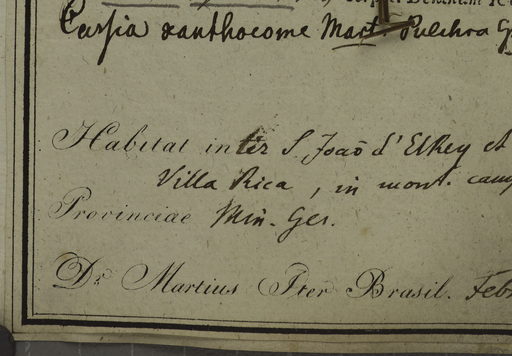 Cassia xanthocome Mart. Pulchra
Habitat inter S. João d'ElRey et
Villa Rica, in mont. camp
Provinciae Min. Ger.
Dr. Martius Iter Brasil. Febr